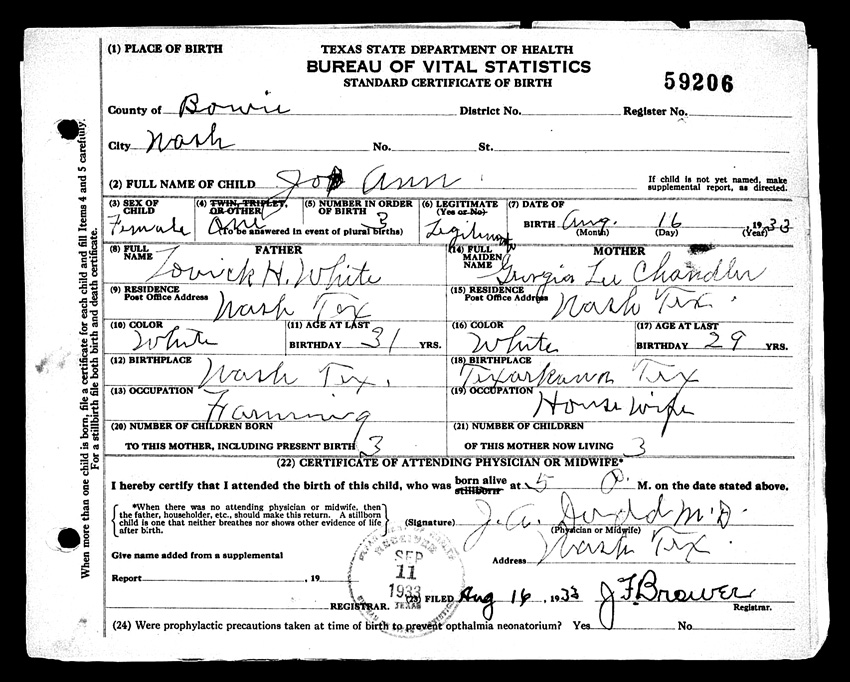 (1) PLACE OF BIRTH
TEXAS STATE DEPARTMENT OF HEALTH
BUREAU OF VITAL STATISTICS
STANDARD CERTIFICATE OF BIRTH
59206
County of Bowie District No. Register No.
City Nash No. St.
(2) FULL NAME OF CHILD Jo Ann
If child is not yet named, make supplemental report, as directed.
(3) SEX OF CHILD Female
(4) TWIN, TRIPLET, OR OTHER One
(5) NUMBER IN ORDER OF BIRTH 3
(To be answered in event of plural births)
(6) LEGITIMATE (Yes or No) Legitimate
(7) DATE OF BIRTH Aug. 16 1933
(Month) (Day) (Year)
FATHER
(8) FULL NAME Lovick H. White
(9) RESIDENCE Post Office Address Nash Tex
(10) COLOR White
(11) AGE AT LAST BIRTHDAY 31 YRS.
(12) BIRTHPLACE Nash Tex.
(13) OCCUPATION Farming
MOTHER
(14) FULL MAIDEN NAME Georgia Lee Chandler
(15) RESIDENCE Post Office Address Nash Tex.
(16) COLOR White
(17) AGE AT LAST BIRTHDAY 29 YRS.
(18) BIRTHPLACE Texarkana Tex
(19) OCCUPATION House Wife
(20) NUMBER OF CHILDREN BORN
TO THIS MOTHER, INCLUDING PRESENT BIRTH 3
(21) NUMBER OF CHILDREN
OF THIS MOTHER NOW LIVING 3
(22) CERTIFICATE OF ATTENDING PHYSICIAN OR MIDWIFE*
I hereby certify that I attended the birth of this child, who was born alive stillborn at 5 P. M. on the date stated above.
*When there was no attending physician or midwife, then
the father, householder, etc., should make this return. A stillborn
child is one that neither breathes nor shows other evidence of life
after birth.
(Signature) J. A. Dodd M.D.
(Physician or Midwife)
Give name added from a supplemental
Address Nash Tex.
Report , 19
REGISTRAR.
RECEIVED
SEP
11
1933
TEXAS
(23) FILED Aug 16, 1933 J F Brower
Registrar.
(24) Were prophylactic precautions taken at time of birth to prevent opthalmia neonatorium? Yes No
When more than one child is born, file a certificate for each child and fill Items 4 and 5 carefully.
For a stillbirth file both birth and death certificate.